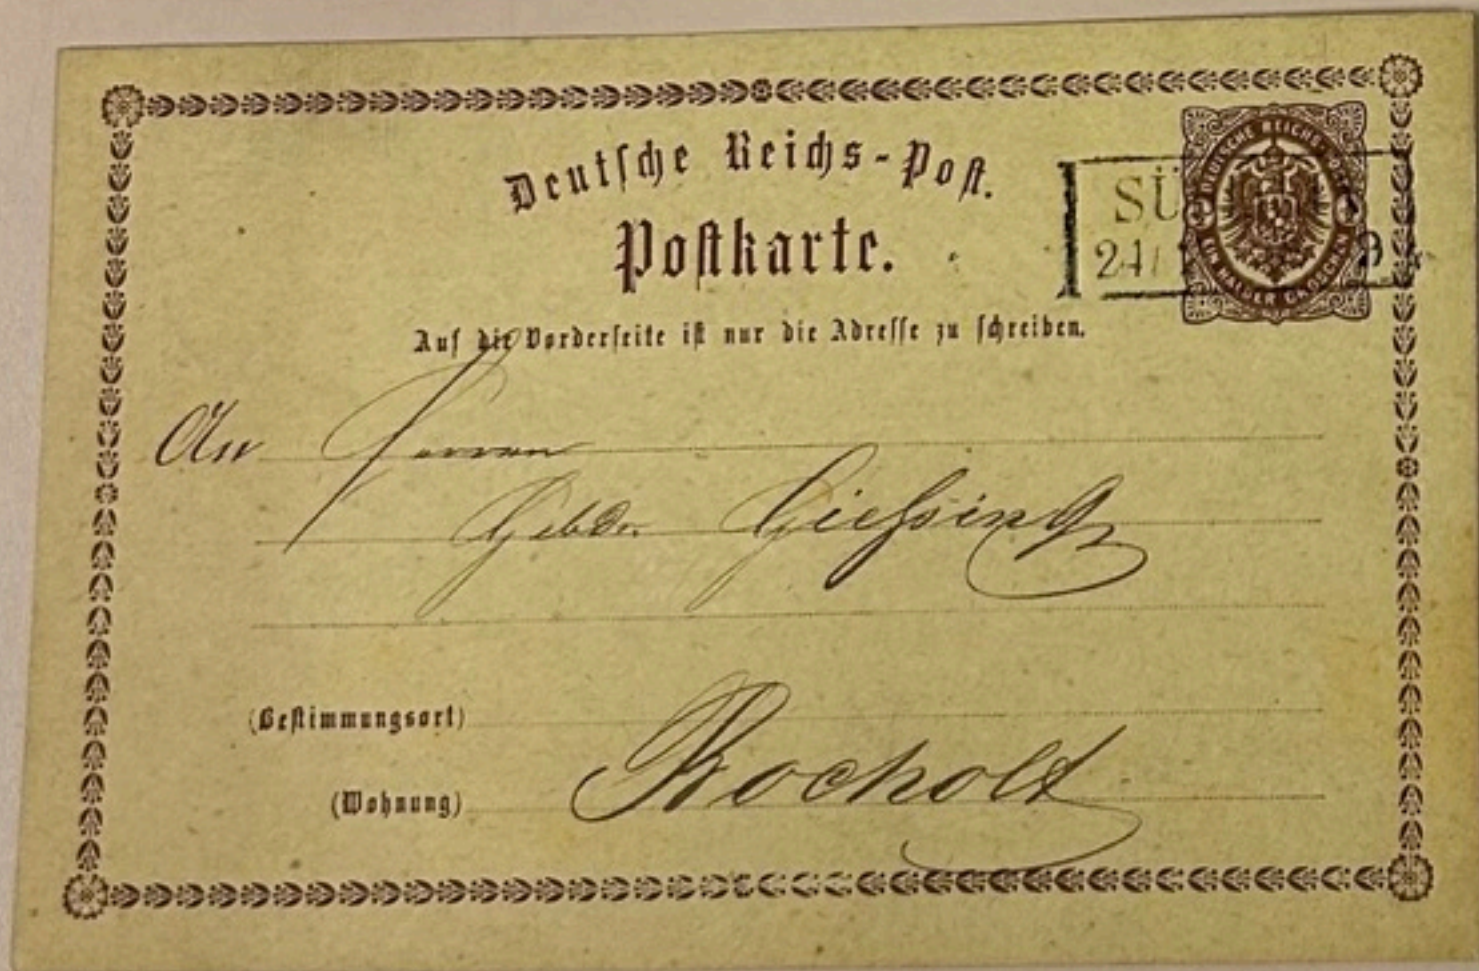 Deutsche Reichs-Post.
Postkarte.
DEUTSCHE REICHS-POST
EIN HALBER GROSCHEN
SÜ
24/ 9
Auf die Vorderseite ist nur die Adresse zu schreiben.
An Herren
Gebdr. Giessing
(Bestimmungsort)
Bocholt
(Wohnung)